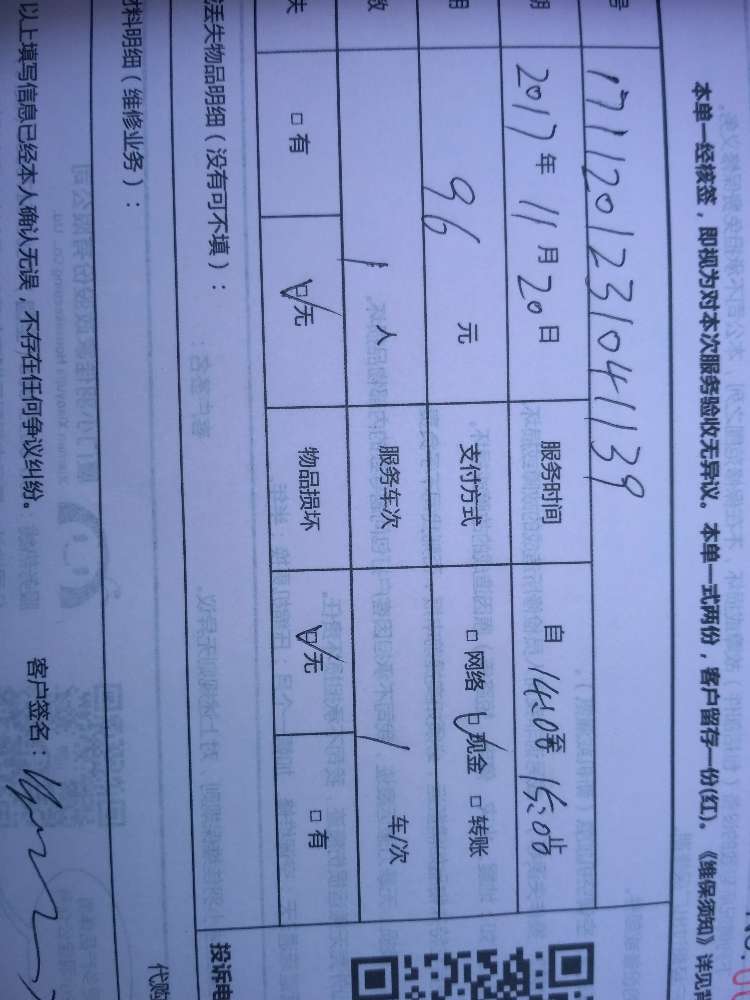 本单一经核签，即视为对本次服务验收无异议。本单一式两份，客户留存一份(红)。《维保须知》详见背
号 1711201231041139
期 2017年11月20日 服务时间 自 14:00至 15:00止
用 96 元 支付方式 □网络 ☑现金 □转账
数 1 人 服务车次 1 车/次
失 □有 ☑无 物品损坏 ☑无 □有
丢失物品明细（没有可不填）：
投诉电
材料明细（维修业务）：
代购
以上填写信息已经本人确认无误，不存在任何争议纠纷。 客户签名：